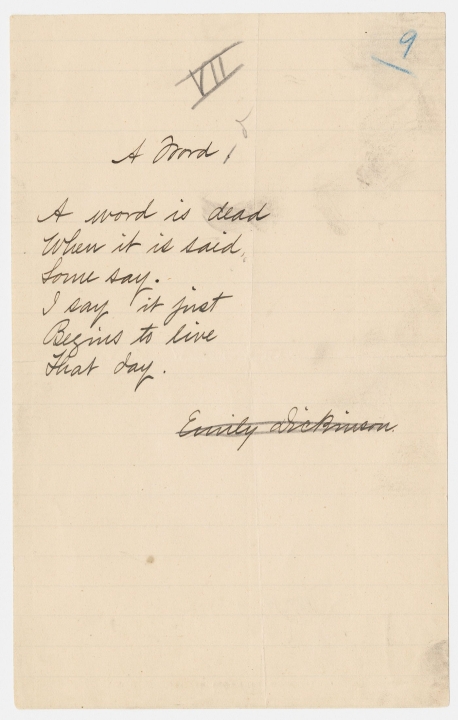 9
VII
A Word
A word is dead
When it is said,
Some say.
I say it just
Begins to live
That day.
Emily Dickinson.